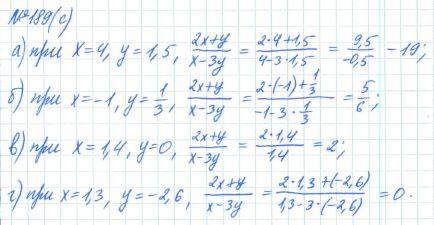 №189(с)
а) при x=4, y=1,5, (2x+y)/(x-3y) = (2·4+1,5)/(4-3·1,5) = 9,5/-0,5 -19;
б) при x=-1, y=1/3, (2x+y)/(x-3y) = (2·(-1)+1/3)/(-1-3·1/3) = 5/6;
в) при x=1,4, y=0, (2x+y)/(x-3y) = (2·1,4)/1,4 = 2;
г) при x=1,3, y=-2,6, (2x+y)/(x-3y) = (2·1,3+(-2,6))/(1,3-3·(-2,6)) = 0.